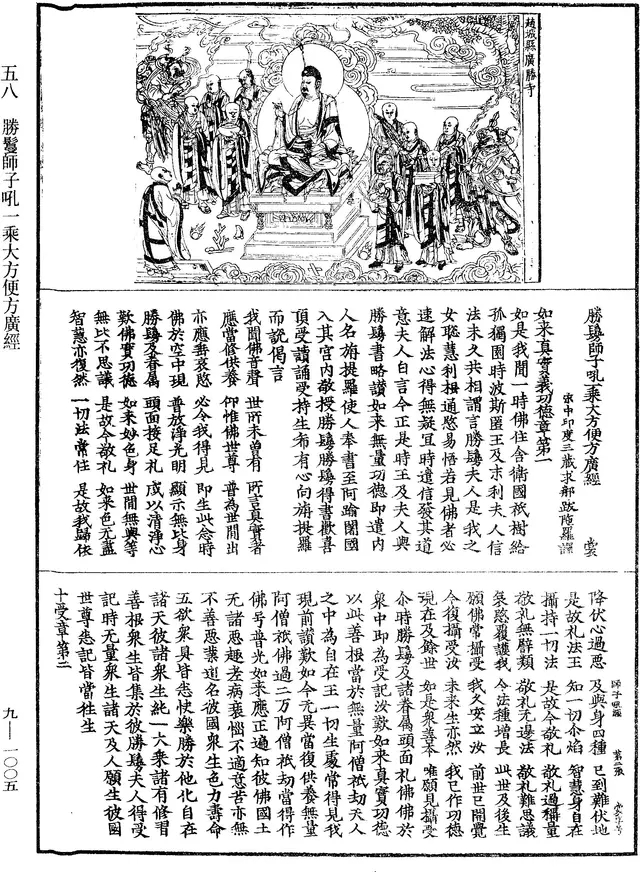 五八　勝鬘師子吼一乘大方便方廣經
九—一〇〇五
趙城縣廣勝寺
勝鬘師子吼一乘大方便方廣經
宋中印度三藏求那跋陁羅譯
如來真實義功德章第一
如是我聞一時佛住舍衛國祇樹給
孤獨園時波斯匿王及末利夫人信
法未久共相謂言勝鬘夫人是我之
女聡慧利根通敏易悟若見佛者必
速解法心得無疑冝時遣信發其道
意夫人白言今正是時王及夫人與
勝鬘書略讃如來無量功德即遣内
人名旃提羅使人奉書至阿踰闍國
入其宫内敬授勝鬘勝鬘得書歡喜
頂受讀誦受持生希有心向旃提羅
而說偈言
我聞佛音聲　世所未曾有　所言真實者
應當修供養　仰惟佛世尊　普為世間出
亦應垂哀愍　必令我得見　即生此念時
佛於空中現　普放淨光明　顯示無比身
勝鬘及眷属　頭面接足礼　咸以清淨心
歎佛實功德　如來妙色身　世間無與等
無比不思議　是故今敬礼　如來色無盡
智慧亦復然　一切法常住　是故我歸依
降伏心過惡　及與身四種　已到難伏地
是故礼法王　知一切尒焰　智慧身自在
攝持一切法　是故今敬礼　敬礼過稱量
敬礼無譬類　敬礼無邊法　敬礼難思議
哀愍覆護我　令法種增長　此世及後生
願佛常攝受　我久安立汝　前世已開覺
今復攝受汝　未來生亦然　我已作功德
現在及餘世　如是衆善本　唯願見攝受
尒時勝鬘及諸眷属頭面礼佛佛於
衆中即為受記汝歎如來真實功德
以此善根當於無量阿僧祇劫天人
之中為自在王一切生處常得見我
現前讃歎如今无異當復供養無量
阿僧祇佛過二万阿僧祇劫當得作
佛号普光如來應正遍知彼佛國土
无諸惡趣老病衰惱不適意苦亦無
不善惡業道名彼國衆生色力壽命
五欲衆具皆悉快樂勝於他化自在
諸天彼諸衆生純一大乘諸有修習
善根衆生皆集於彼勝鬘夫人得受
記時无量衆生諸天及人願生彼國
世尊悉記皆當往生
十受章第二